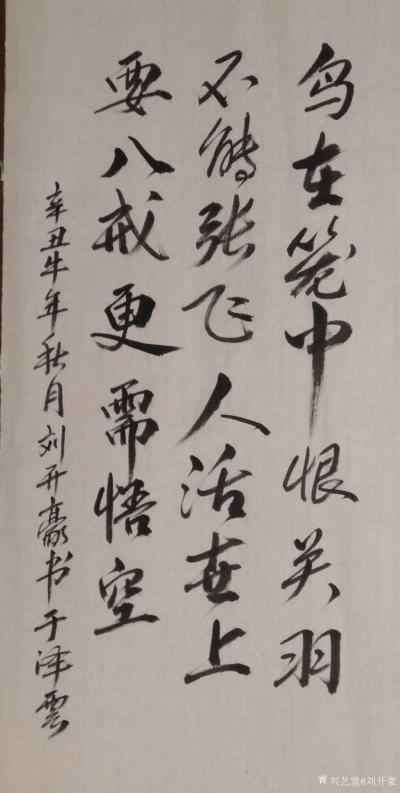 鸟在笼中恨关羽
不能张飞人活世上
要八戒更需悟空
辛丑牛年秋月刘开豪书于泽雲
兴艺堂@刘开豪